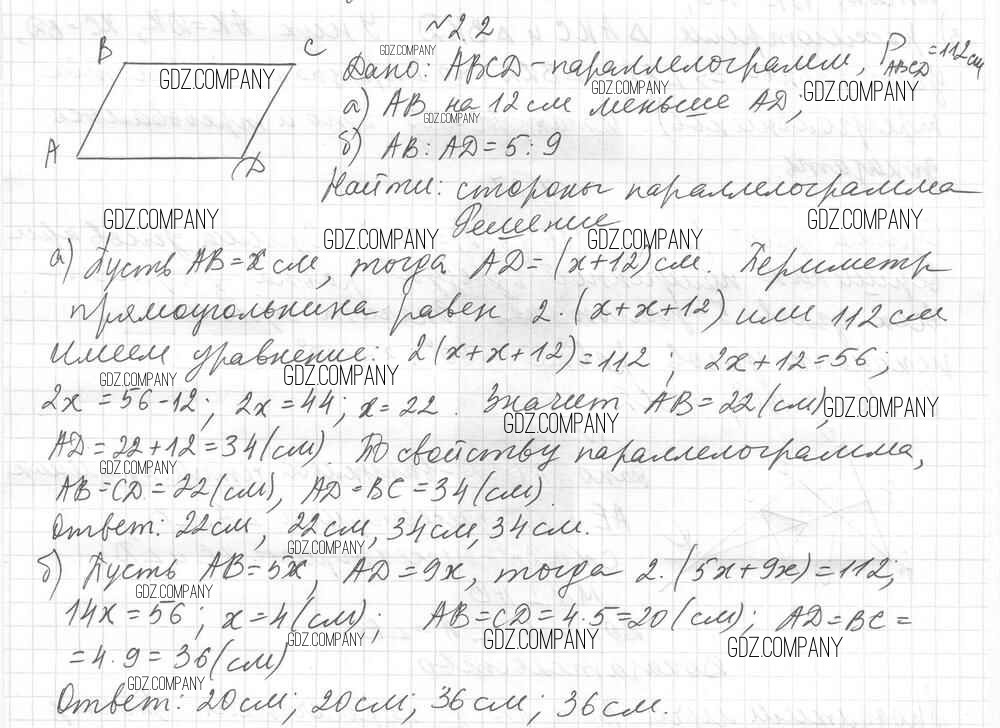 №2.2
B C
GDZ.COMPANY
Дано: ABCD - параллелограмм, P ABCD = 112 см
GDZ.COMPANY
GDZ.COMPANY GDZ.COMPANY
а) AB на 12 см меньше AD;
GDZ.COMPANY
б) AB : AD = 5 : 9
A D
Найти: стороны параллелограмма
GDZ.COMPANY GDZ.COMPANY
Решение
GDZ.COMPANY GDZ.COMPANY
а) Пусть AB = x см, тогда AD = (x+12) см. Периметр
прямоугольника равен 2·(x+x+12) или 112 см
Имеем уравнение: 2(x+x+12)=112; 2x+12=56;
GDZ.COMPANY GDZ.COMPANY
2x = 56-12; 2x = 44; x = 22. Значит AB = 22 (см),
GDZ.COMPANY
GDZ.COMPANY
AD = 22+12 = 34 (см). По свойству параллелограмма,
GDZ.COMPANY
AB = CD = 22 (см), AD = BC = 34 (см).
Ответ: 22 см, 22 см, 34 см, 34 см.
GDZ.COMPANY
б) Пусть AB = 5x, AD = 9x, тогда 2·(5x+9x)=112;
GDZ.COMPANY
14x = 56; x = 4 (см); AB = CD = 4·5 = 20 (см); AD = BC =
GDZ.COMPANY GDZ.COMPANY GDZ.COMPANY
= 4·9 = 36 (см)
GDZ.COMPANY
Ответ: 20 см; 20 см; 36 см; 36 см.